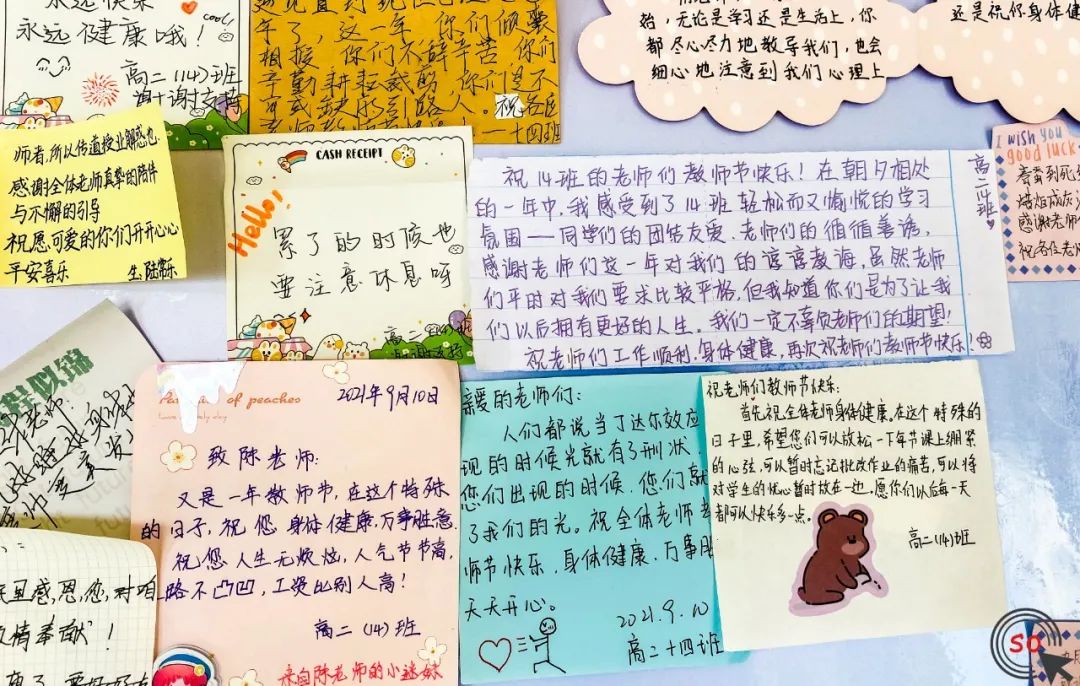 永远快乐
永远健康哦！
cool!
高二(14)班
谢谢支持
年了，这一年，你们倾囊
相授，你们不辞辛苦，你们
辛勤耕耘
人。祝各位
十四班
始，无论是学习还是生活上，你
都尽心尽力地教导我们，也会
细心地注意到我们心理上
还是祝你身体健
师者，所以传道授业解惑也。
感谢全体老师真挚的陪伴
与不懈的引导
祝愿可爱的你们开开心心
平安喜乐
CASH RECEIPT
Hello!
累了的时候也
要注意休息呀
高二
祝14班的老师们教师节快乐！在朝夕相处
的一年中，我感受到了14班轻松而又愉悦的学习
氛围——同学们的团结友爱、老师们的循循善诱，
感谢老师们这一年对我们的谆谆教诲，虽然老师
们平时对我们要求比较严格，但我知道你们是为了让我
们以后拥有更好的人生。我们一定不辜负老师们的期望！
祝老师们工作顺利，身体健康，再次祝老师们教师节快乐！
高二14班
I wish you
good luck
春蚕到死
感谢老师
祝各位老师
of peaches
2021年9月10日
致陈老师：
又是一年教师节，在这个特殊
的日子，祝您身体健康，万事胜意
祝您人生无烦忧，人气节节高，
路不凸凹，工资比别人高！
高二(14)班
来自陈老师的小迷妹
亲爱的老师们：
人们都说当丁达尔效应
现的时候光就有了形状，
您们出现的时候，您们就
了我们的光。祝全体老师
师节快乐，身体健康、万事
天天开心。
2021.9.10
高二十四班
祝老师们教师节快乐：
首先祝全体老师身体健康。在这个特殊的
日子里，希望您们可以放松一下在课上绷紧
的心弦，可以暂时忘记批改作业的痛苦，可以将
对学生的忧心暂时放在一边，愿你们以后每一天
都可以快乐多一点。
高二(14)班
感恩，您，对咱
情奉献！
SO